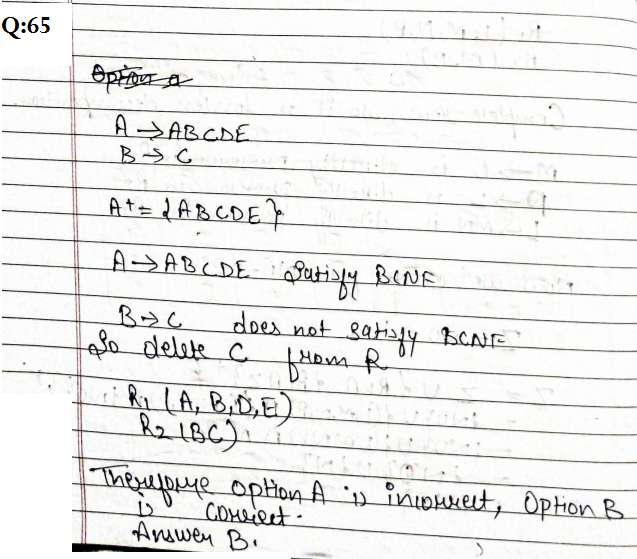 Q:65
Option a
A → ABCDE
B → C
A+ = {ABCDE}
A → ABCDE Satisfy BCNF
B → C does not satisfy BCNF
So delete C from R
R1 (A, B, D, E)
R2 (BC)
Therefore option A is incorrect, Option B
is correct.
Answer B.